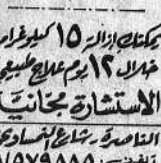 يمكنك ازالة ١٥ كيلوغرام
خلال ١٢ يوم علاج طبيعي
الاستشارة مجانية
الناصرة - شارع النمساوي